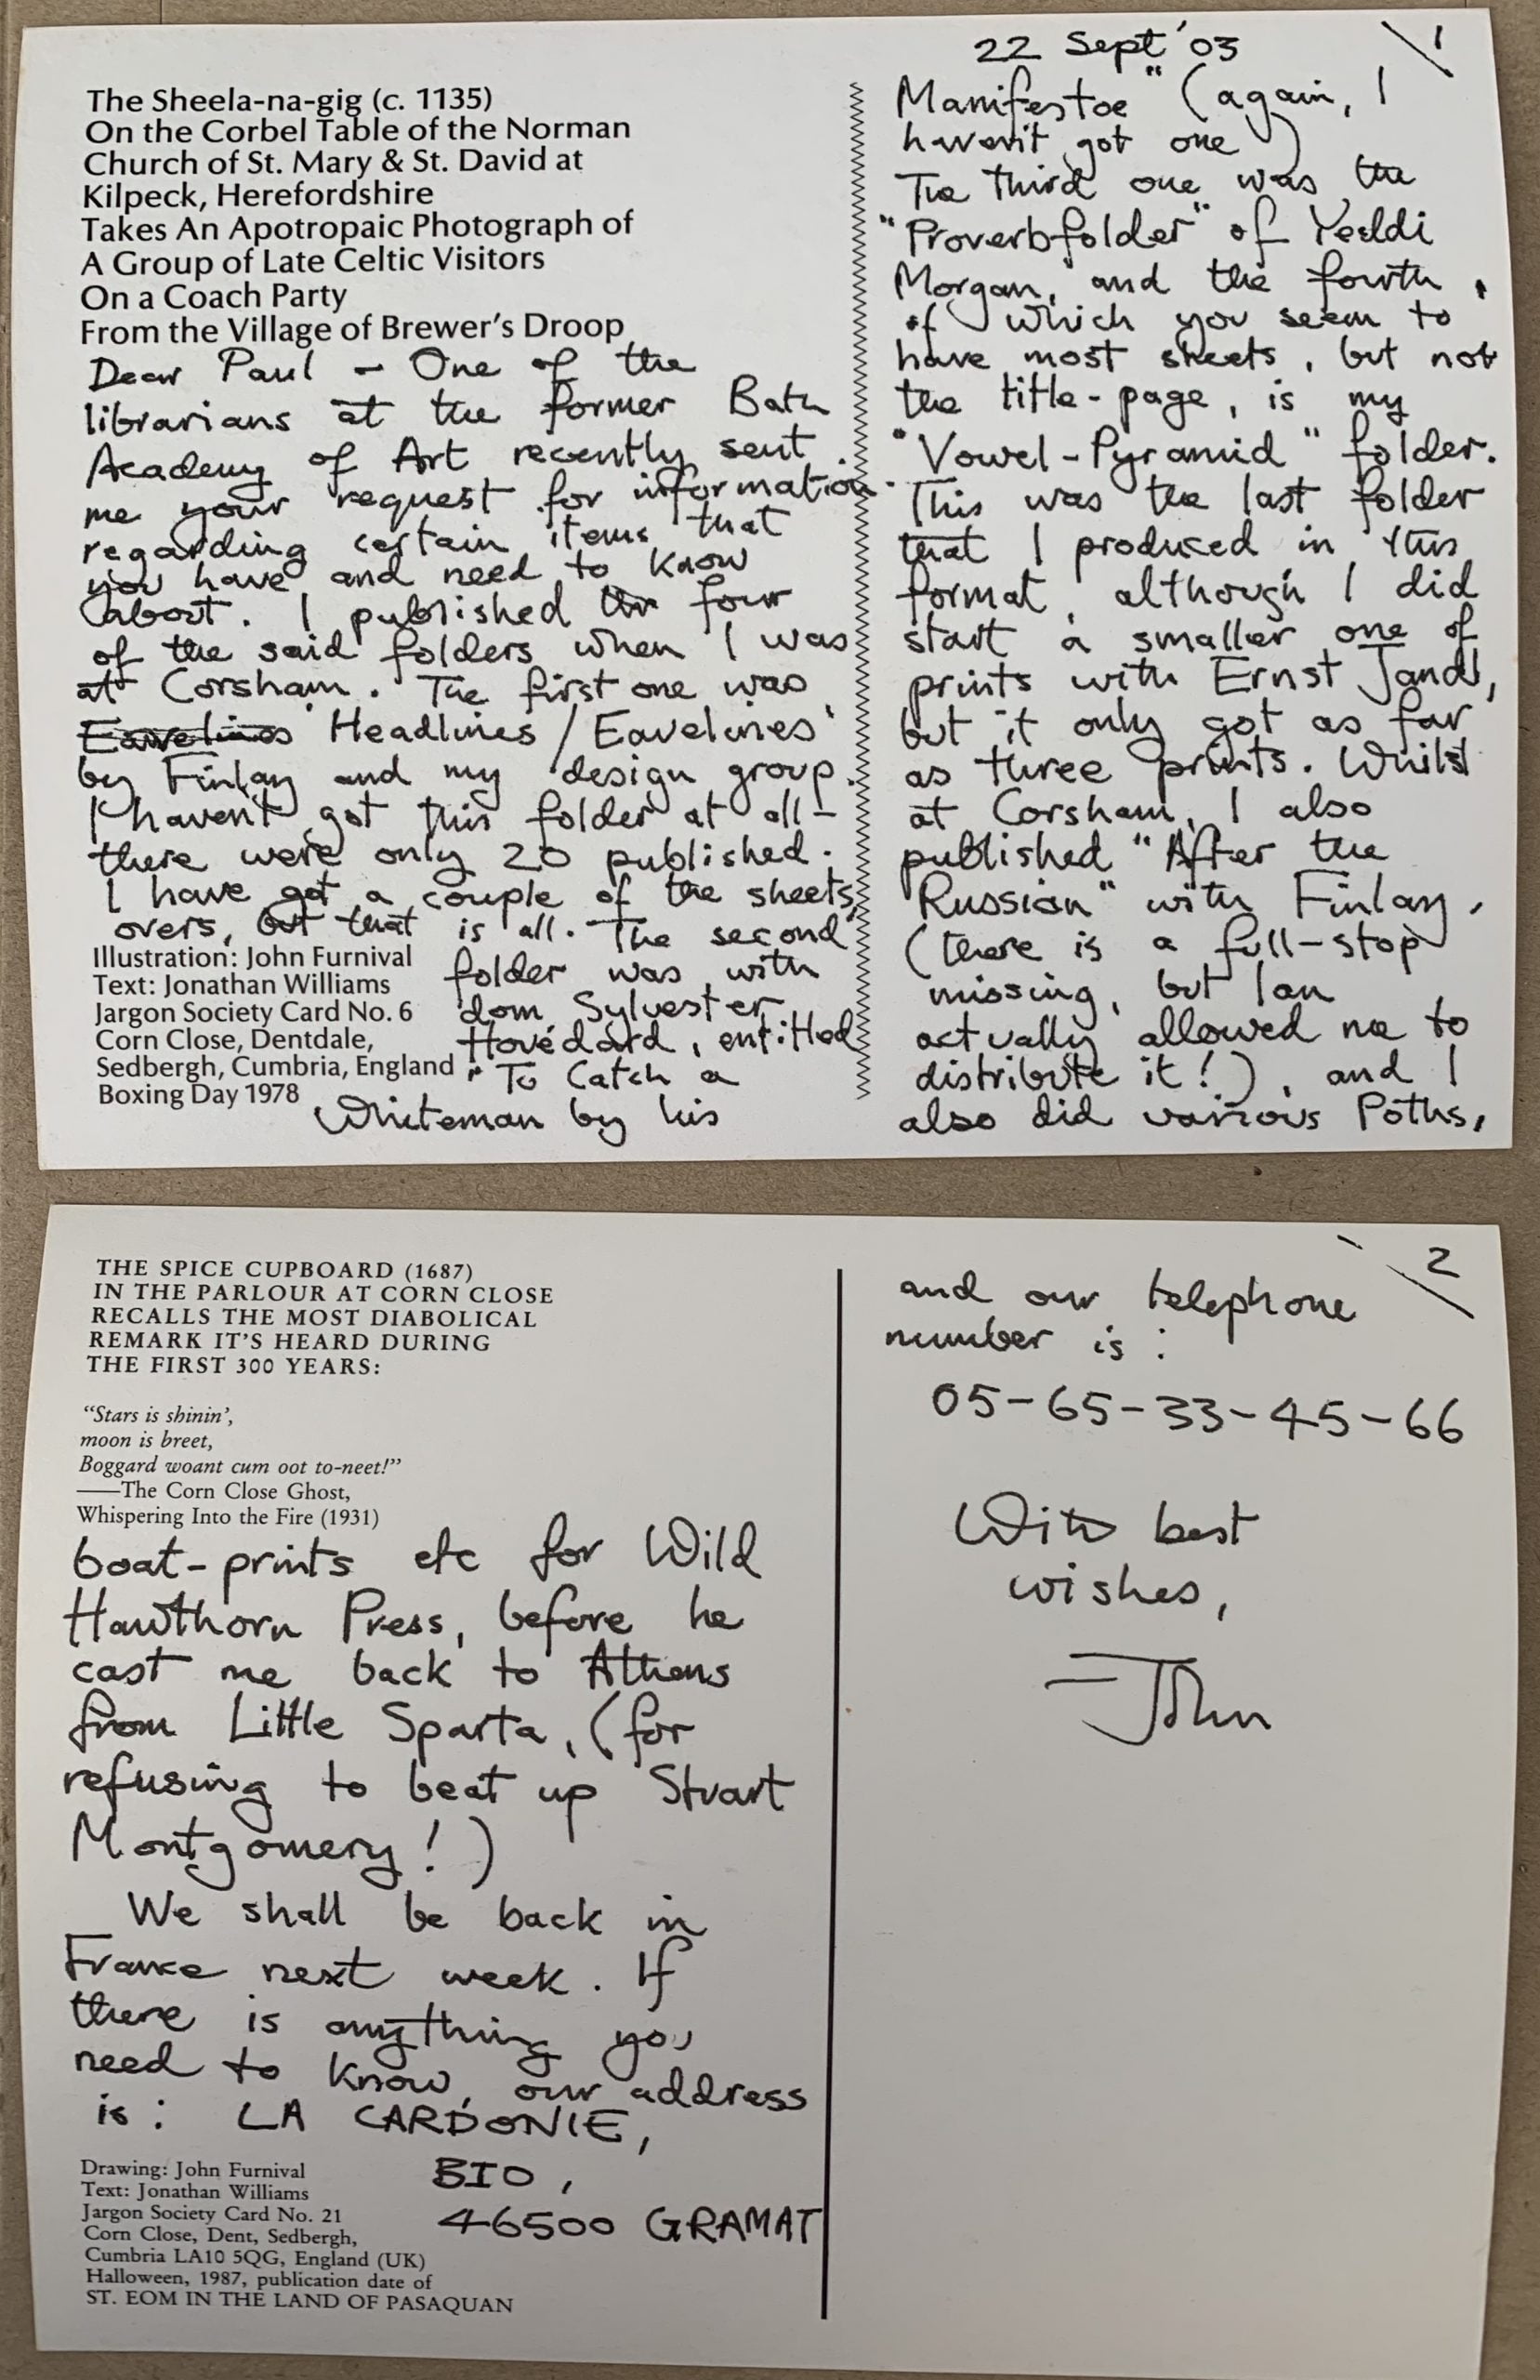 The Sheela-na-gig (c. 1135)
On the Corbel Table of the Norman
Church of St. Mary & St. David at
Kilpeck, Herefordshire
Takes An Apotropaic Photograph of
A Group of Late Celtic Visitors
On a Coach Party
From the Village of Brewer's Droop
Dear Paul - One of the
librarians at the former Bath
Academy of Art recently sent
me your request for information
regarding certain items that
you have and need to know
about. I published four
of the said folders when I was
at Corsham. The first one was
Eavelines 'Headlines / Eavelines'
by Finlay and my design group.
I haven't got this folder at all -
there were only 20 published.
I have got a couple of the sheets,
overs, but that is all. The second
folder was with
dom Sylvester
Hovédard, entitled
"To Catch a
Whiteman by his
Illustration: John Furnival
Text: Jonathan Williams
Jargon Society Card No. 6
Corn Close, Dentdale,
Sedbergh, Cumbria, England
Boxing Day 1978
22 Sept '03
1
Manifestoe" (again, I
haven't got one)
The third one was the
"Proverbfolder" of Yeddi
Morgan, and the fourth,
of which you seem to
have most sheets, but not
the title-page, is my
"Vowel-Pyramid" folder.
This was the last folder
that I produced in this
format, although I did
start a smaller one of
prints with Ernst Jandl,
but it only got as far
as three prints. Whilst
at Corsham, I also
published "After the
Russian" with Finlay,
(there is a full-stop
missing, but Ian
actually allowed me to
distribute it!), and I
also did various Poths,
THE SPICE CUPBOARD (1687)
IN THE PARLOUR AT CORN CLOSE
RECALLS THE MOST DIABOLICAL
REMARK IT'S HEARD DURING
THE FIRST 300 YEARS:
"Stars is shinin',
moon is breet,
Boggard woant cum oot to-neet!"
——The Corn Close Ghost,
Whispering Into the Fire (1931)
boat-prints etc for Wild
Hawthorn Press, before he
cast me back to Athens
from Little Sparta, (for
refusing to beat up Stuart
Montgomery!)
We shall be back in
France next week. If
there is anything you
need to know, our address
is: LA CARDONIE,
BIO,
46500 GRAMAT
Drawing: John Furnival
Text: Jonathan Williams
Jargon Society Card No. 21
Corn Close, Dent, Sedbergh,
Cumbria LA10 5QG, England (UK)
Halloween, 1987, publication date of
ST. EOM IN THE LAND OF PASAQUAN
2
and our telephone
number is:
05-65-33-45-66
With best
wishes,
John